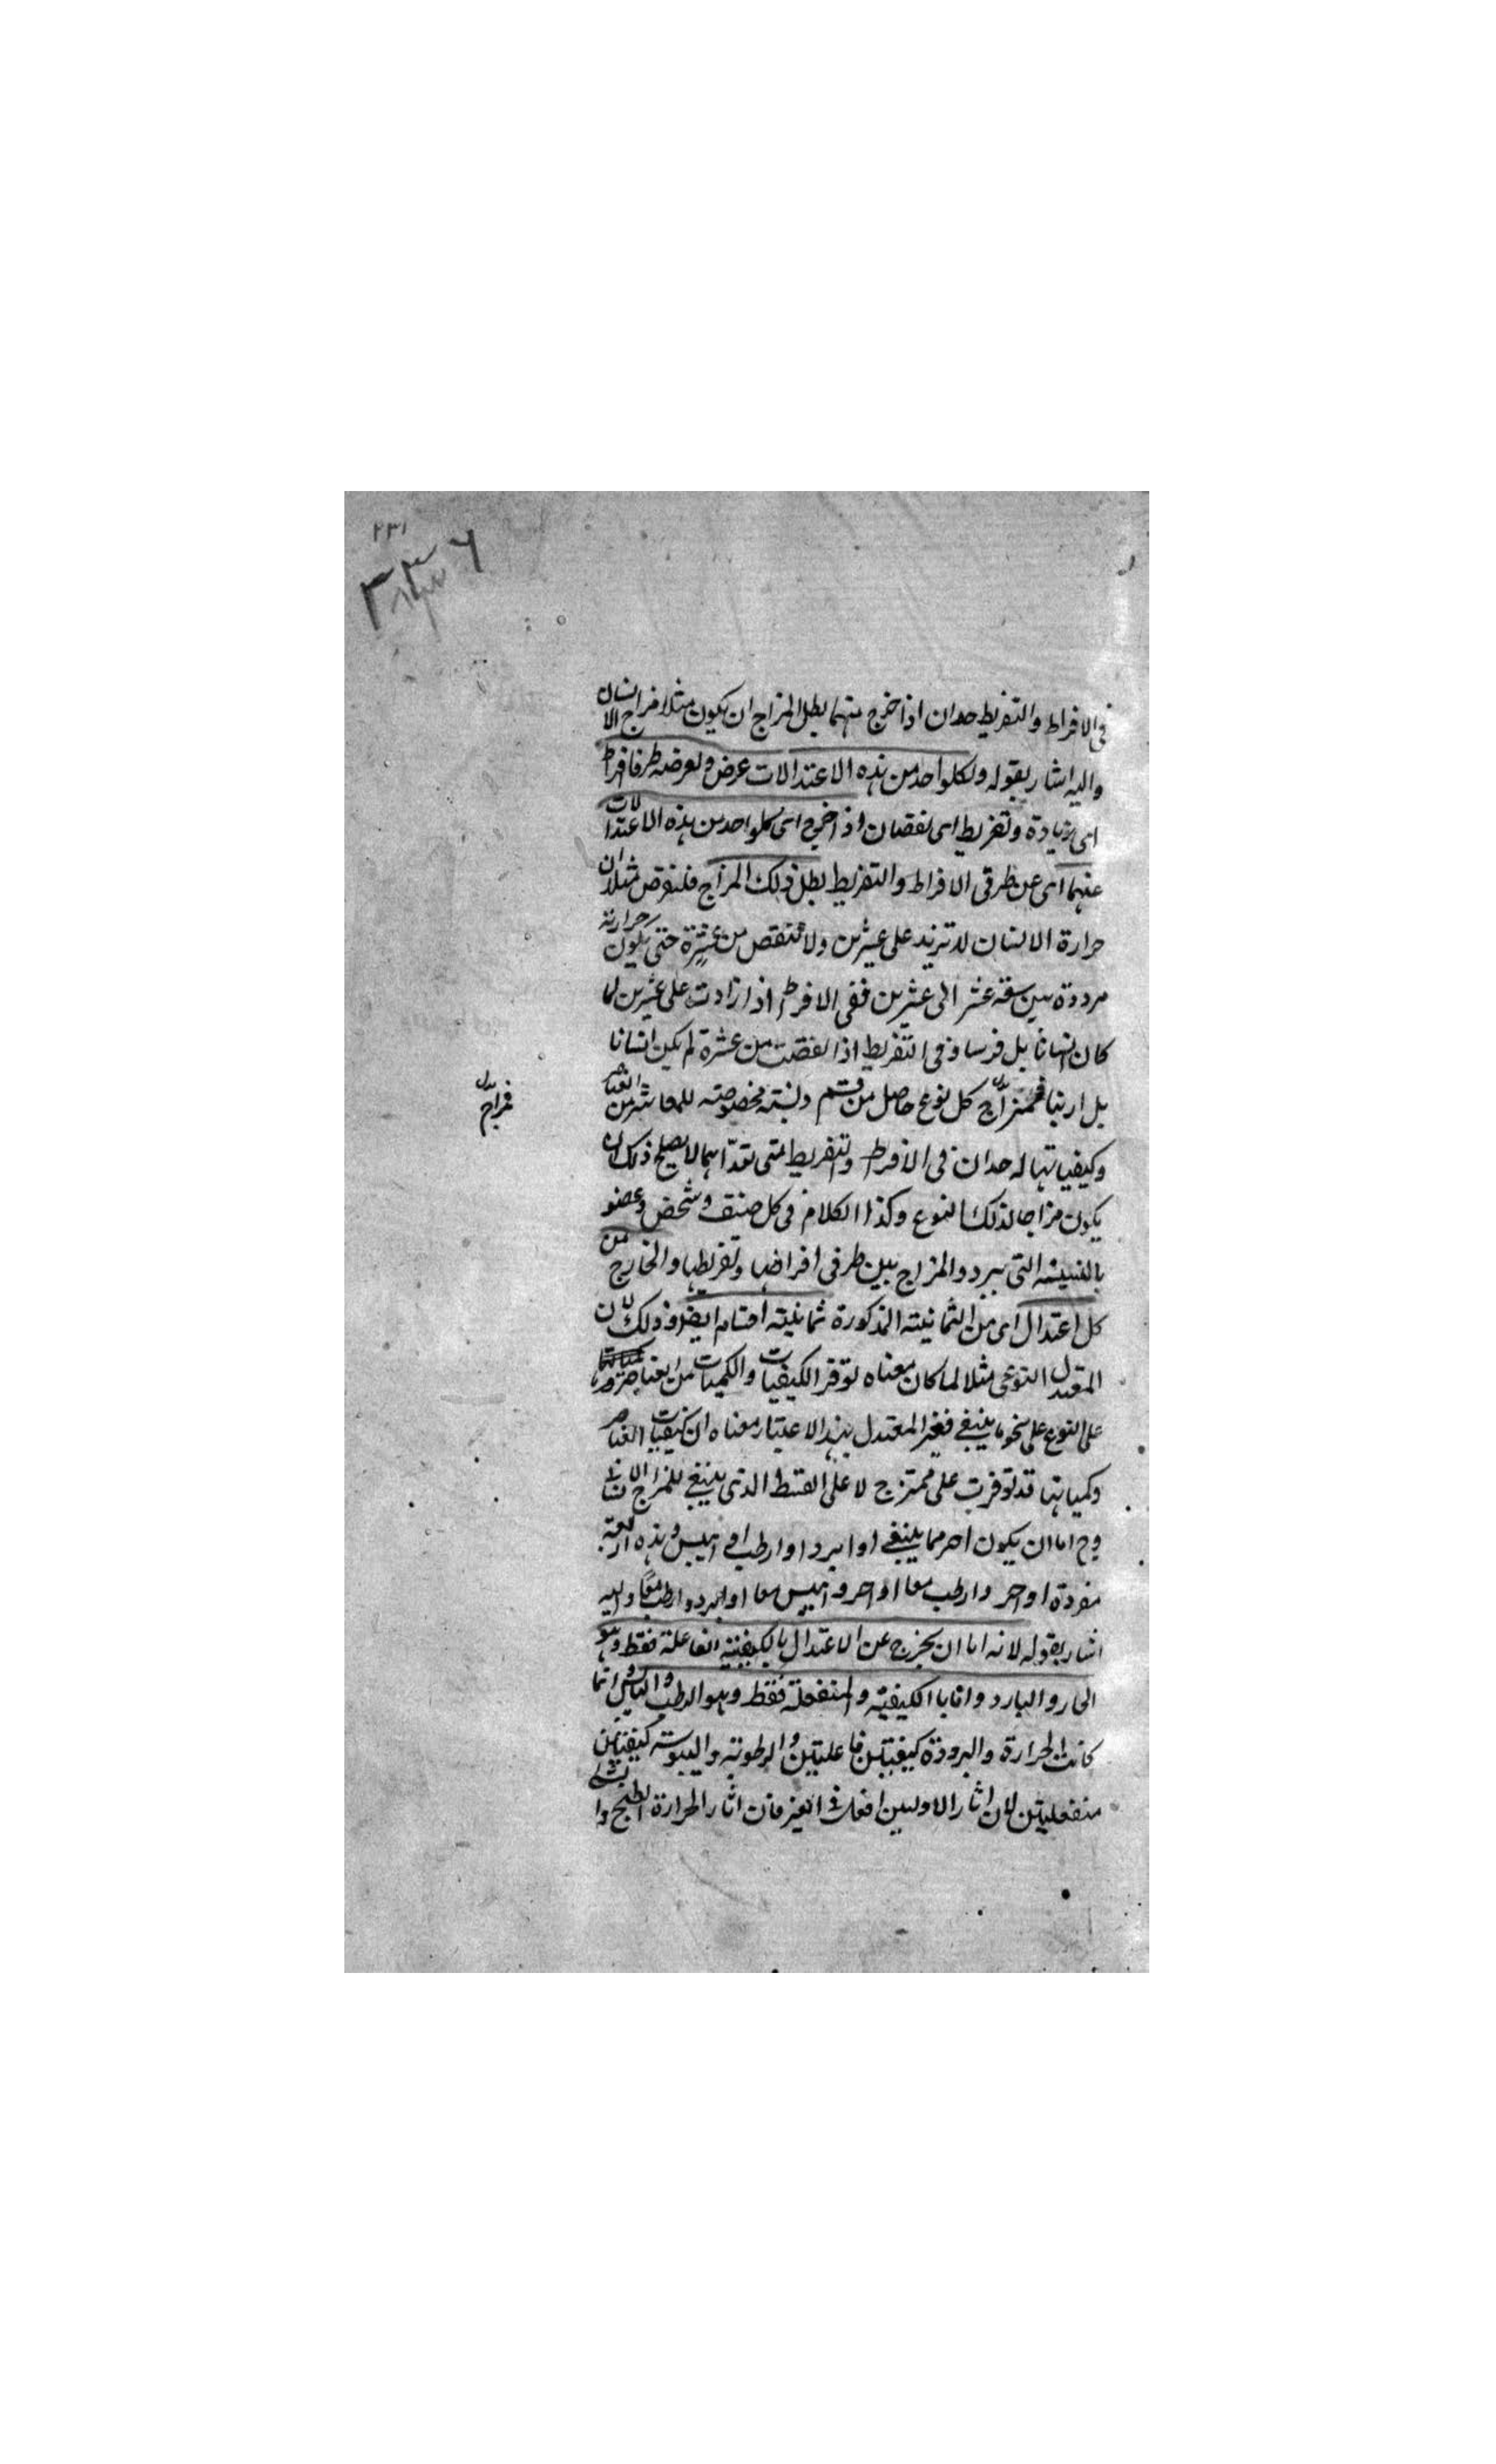 ٢٣١
٣٣٦
في الافراط والتفريط حدان اذا خرج منهما بطل المزاج ان يكون مثلا مزاج الانسان
واليه اشار بقوله ولكلواحد من هذه الاعتدالات عرض ولعرضه طرفا افراط
اى زيادة وتفريط اى نقصان اذا خرج اى كلواحد من هذه الاعتدالات
عنهما اى عن طرفى الافراط والتفريط بطل ذلك المزاج فلنفرض مثلا ان
حرارة الانسان لا تزيد على عشرين ولا تنقص من عشرة حتى يكون حرارته
مرددة بين عشر الى عشرين ففى الافراط اذا زادت على عشرين لما
كان انسانا بل فرسا وفى التفريط اذا نقصت من عشرة لم يكن انسانا
بل ارنبا فمزاج كل نوع حاصل من قسم ونسبة مخصوصة من العناصر
مزاج
وكيفياتها له حدان فى الافراط والتفريط متى تعداهما لا يصلح ذلك ان
يكون مزاجا لذلك النوع وكذا الكلام فى كل صنف وشخص وعضو
بالنسبة التى المزاج بين طرفى افراطها وتفريطها والخارج من
كل اعتدال اى من الثمانية المذكورة ثمانية اقسام ايضا وذلك لان
المعتدل النوعى مثلا لما كان معناه توفر الكيفيات والكميات من العناصر
على النوع على نحو ما ينبغى فغير المعتدل بهذا الاعتبار معناه ان كيفيات العناصر
وكمياتها قد توفرت على ممتزج لا على القسط الذى ينبغى للمزاج الانسانى
وح اما ان يكون احر مما ينبغى او ابرد او ارطب او ايبس وهذه اربعة
مفردة او احر وارطب معا او احر وايبس معا او ابرد وارطب معا واليه
اشار بقوله لانه اما ان يخرج عن الاعتدال بالكيفية الفاعلة فقط وهو
الحار والبارد واما بالكيفية المنفعلة فقط وهو الرطب واليابس وانما
كانت الحرارة والبرودة كيفيتين فاعليتين والرطوبة واليبوسة كيفيتين
منفعليتين لان اثار الاوليين افعال فى الغير فان اثار الحرارة الطبخ وا